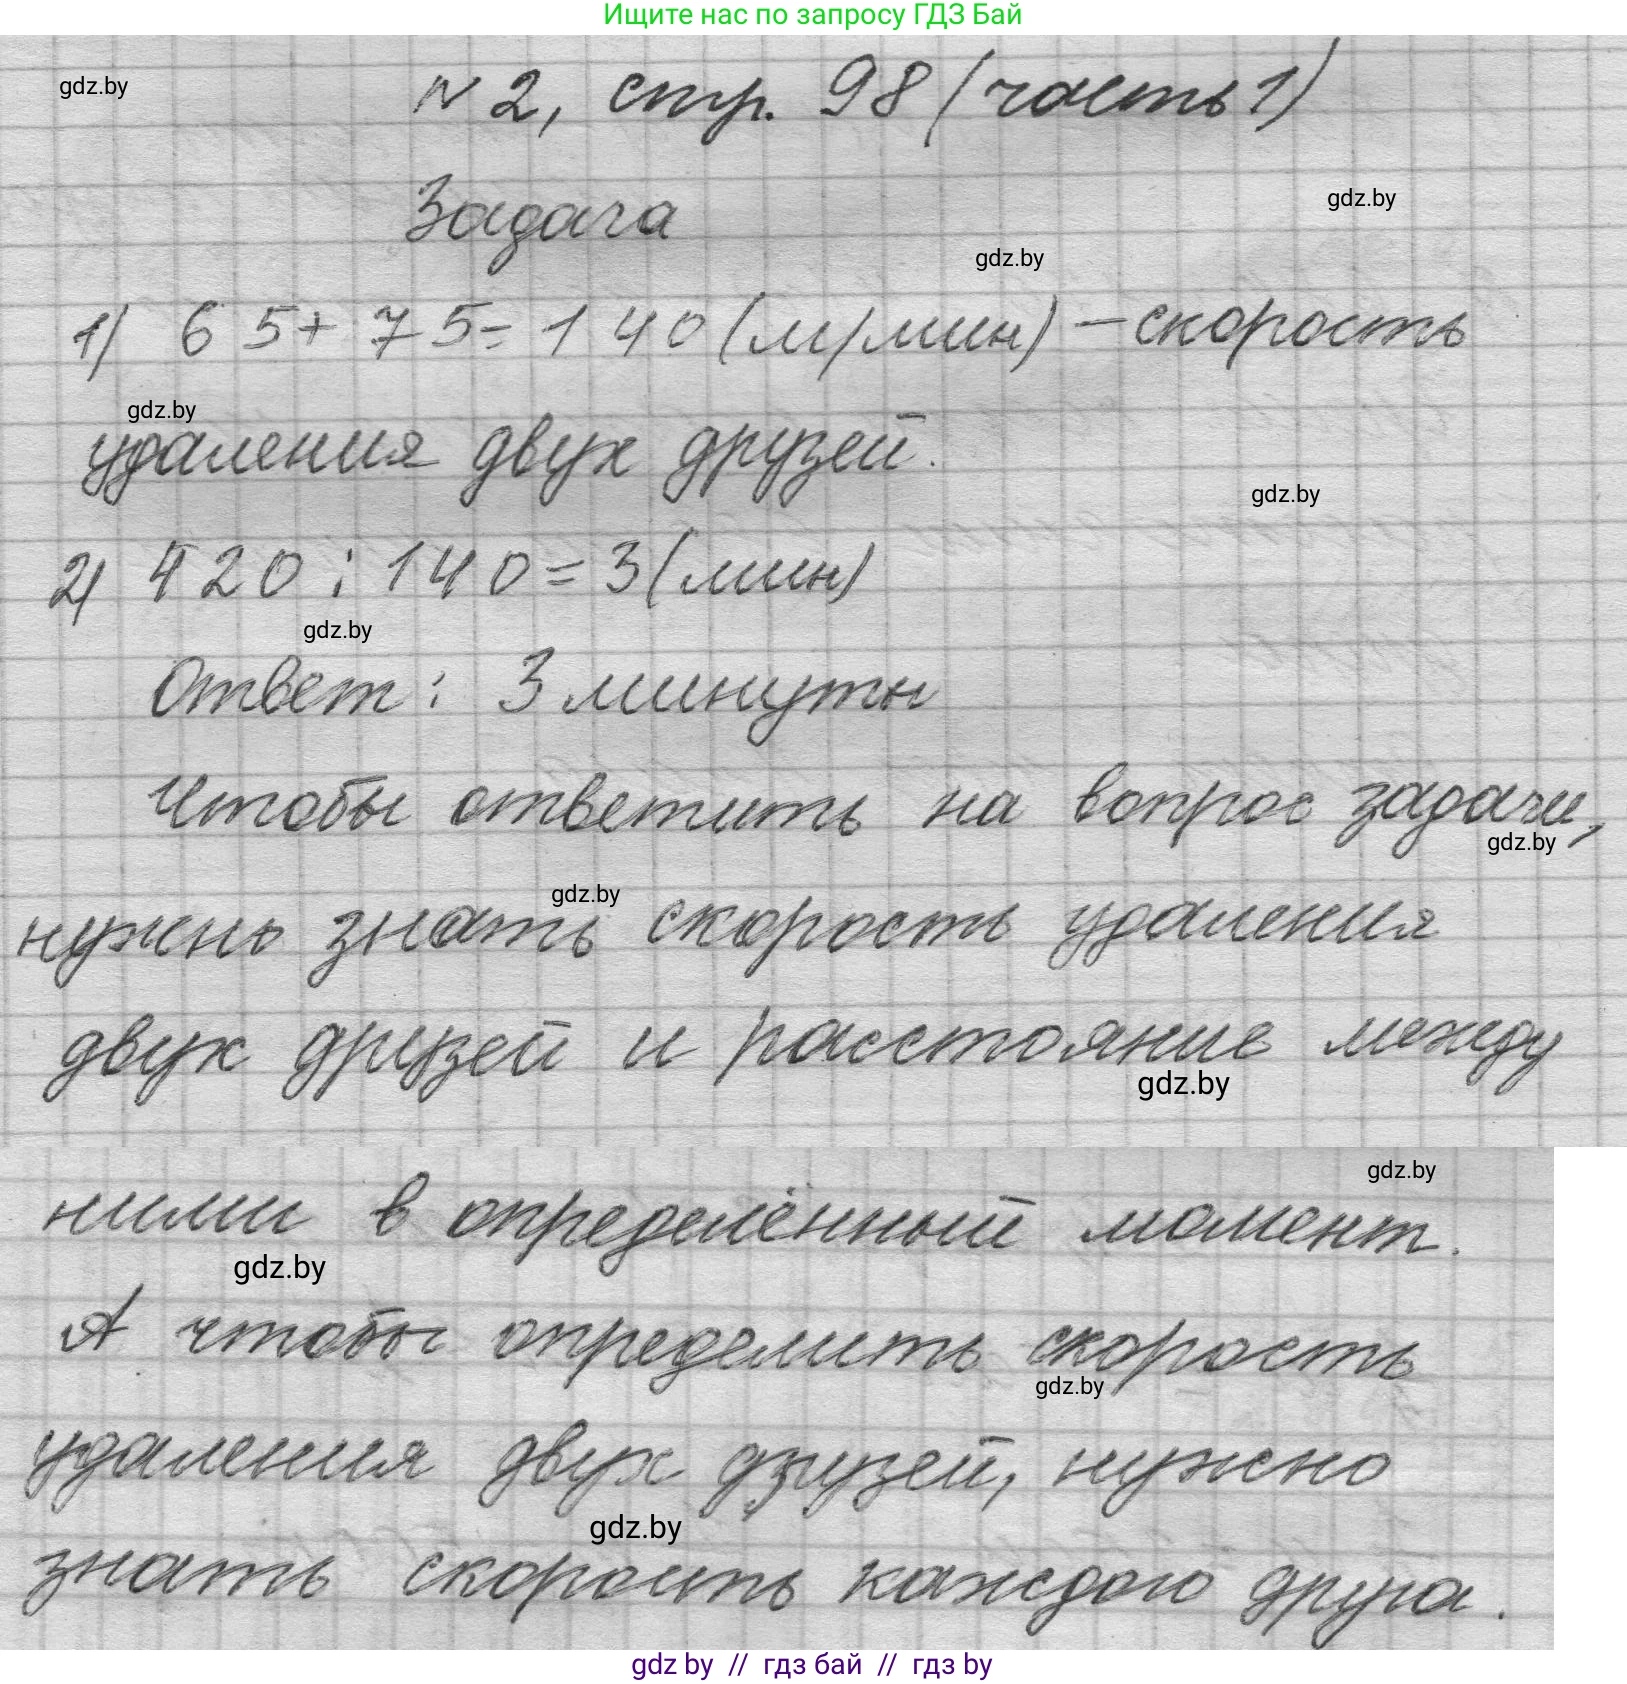 Ищите нас по запросу ГДЗ Бай
gdz.by
№2, стр. 98 (часть 1)
Задача
gdz.by
gdz.by
1) 65+75=140 (м/мин) – скорость
gdz.by
удаления двух друзей.
gdz.by
2) 420:140=3 (мин)
gdz.by
Ответ: 3 минуты
Чтобы ответить на вопрос задачи,
gdz.by
gdz.by
нужно знать скорость удаления
двух друзей и расстояние между
gdz.by
gdz.by
ними в определённый момент.
gdz.by
А чтобы определить скорость
gdz.by
удаления двух друзей, нужно
gdz.by
знать скорость каждого друга.
gdz by // гдз бай // гдз by